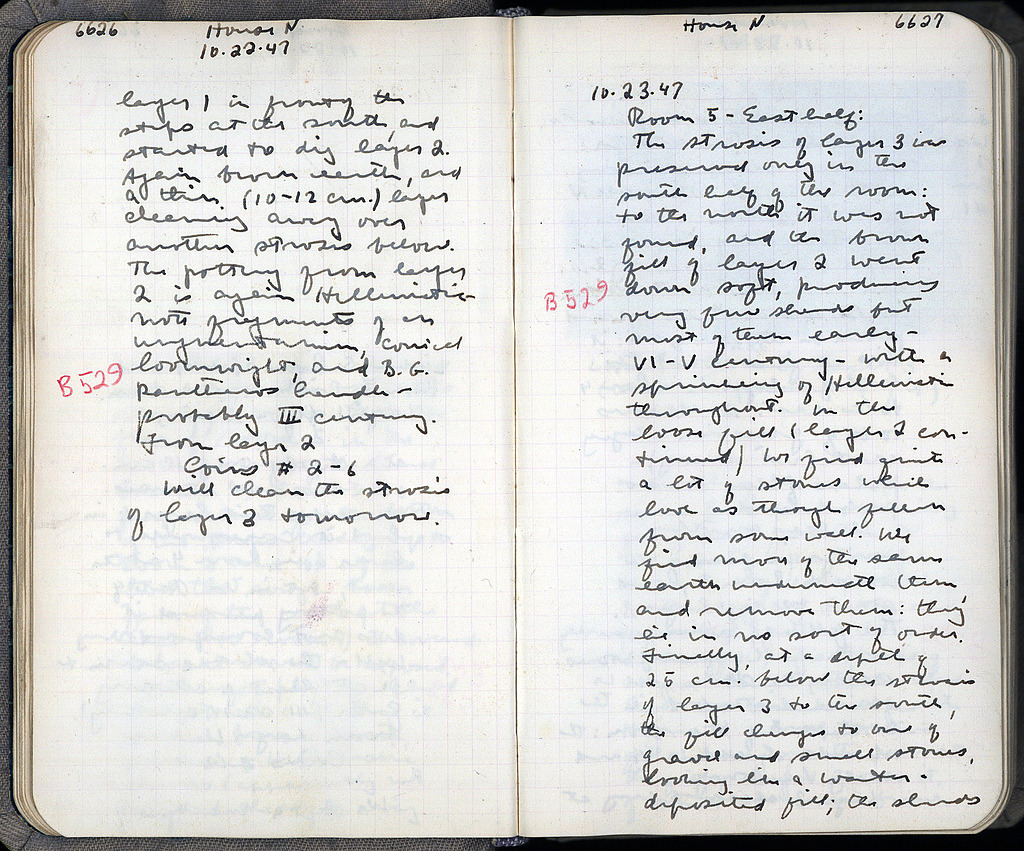 6626
House N
10.22.47
layer 1 in front of the
steps at the south, and
started to dig layer 2.
Again brown earth, and
a thin (10-12 cm.) layer
cleaning away over
another strosis below.
The pottery from layer
2 is again Hellenistic -
note fragments of an
unguentarium, conical
B 529
loomweight, and B.G.
kantharos handle -
probably III century.
From layer 2
Coins # 2-6
Will clean the strosis
of layer 3 tomorrow.
House N
6627
10.23.47
Room 5 - East half:
The strosis of layer 3 was
preserved only in the
south half of the room:
to the north it was not
found, and the brown
fill of layer 2 went
B 529
down soft, producing
very few sherds but
most of them early -
VI-V century - with a
sprinkling of Hellenistic
throughout. In the
loose fill (layer 2 con-
tinued) we find quite
a lot of stones which
look as though fallen
from some wall. We
find more of the same
earth underneath them,
and remove them: they
lie in no sort of order.
Finally, at a depth of
25 cm. below the strosis
of layer 3 to the south,
the fill changes to one of
gravel and small stones,
looking like a water-
deposited fill; the sherds